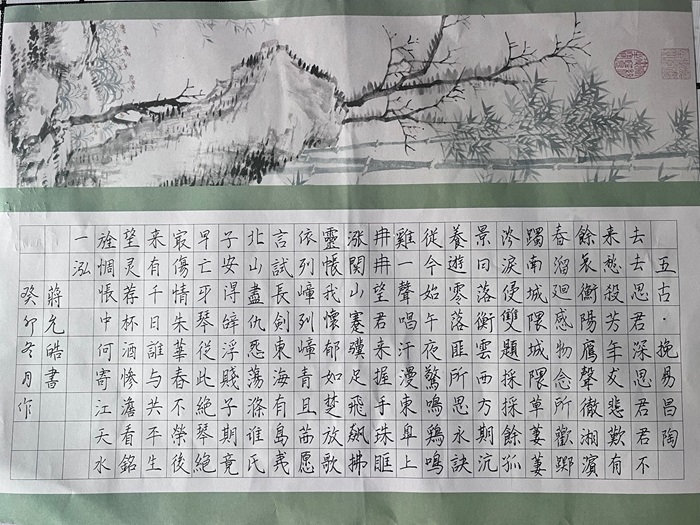 五古·挽易昌陶
去去思君深思君君不
来愁殺芳年友悲歎有
餘哀衡陽雁聲徹湘濱
春溜廻感物念所歡躑
躅南城隈城隈草萋萋
涔淚侵雙題採採餘孤
景日落衡雲西方期沆
養遊零落匪所思永訣
從今始午夜驚鳴鷄鳴
雞一聲唱汗漫東皐上
冉冉望君来握手珠眶
漲関山蹇驥足飛飆拂
靈帳我懷郁如焚放歌
依列嶂列嶂青且茜愿
言試長劍東海有島夷
北山盡仇怨蕩滌誰氏
子安得辞浮賤子期竟
早亡牙琴從此絶琴絶
最傷情朱華春不榮後
来有千日誰与共平生
望灵荐杯酒惨澹看銘
旌惆悵中何寄江天水
一泓
蔣允皓書
癸卯冬月作